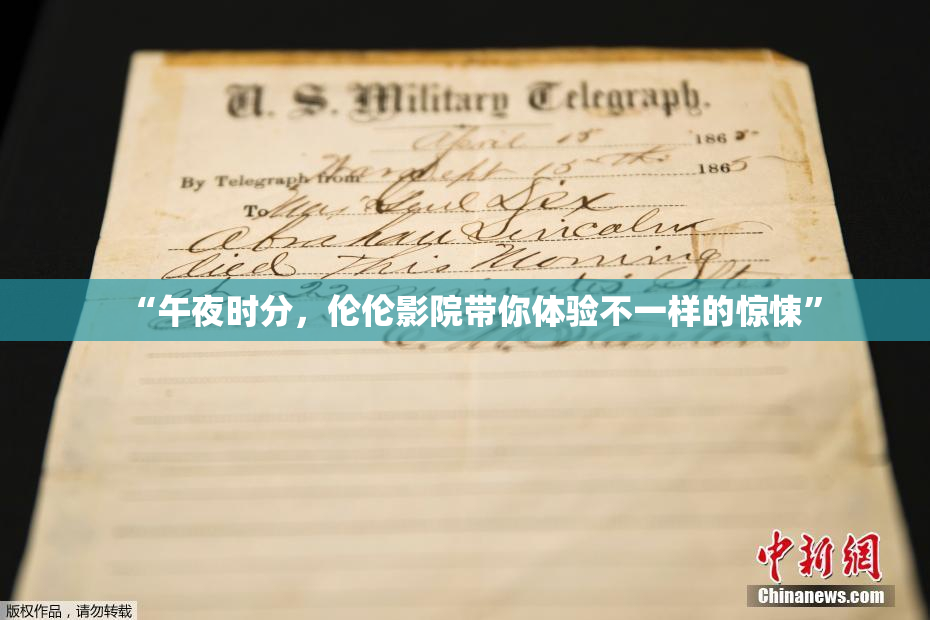 U. S. Military Telegraph.
April 15 1865
By Telegraph from War Dept 15th 1865
To Maj Genl Dix
Abraham Lincoln
died This Morning
at 22 minutes after
“午夜时分，伦伦影院带你体验不一样的惊悚”
E. M. Stanton
中新网
Chinanews.com
版权作品，请勿转载